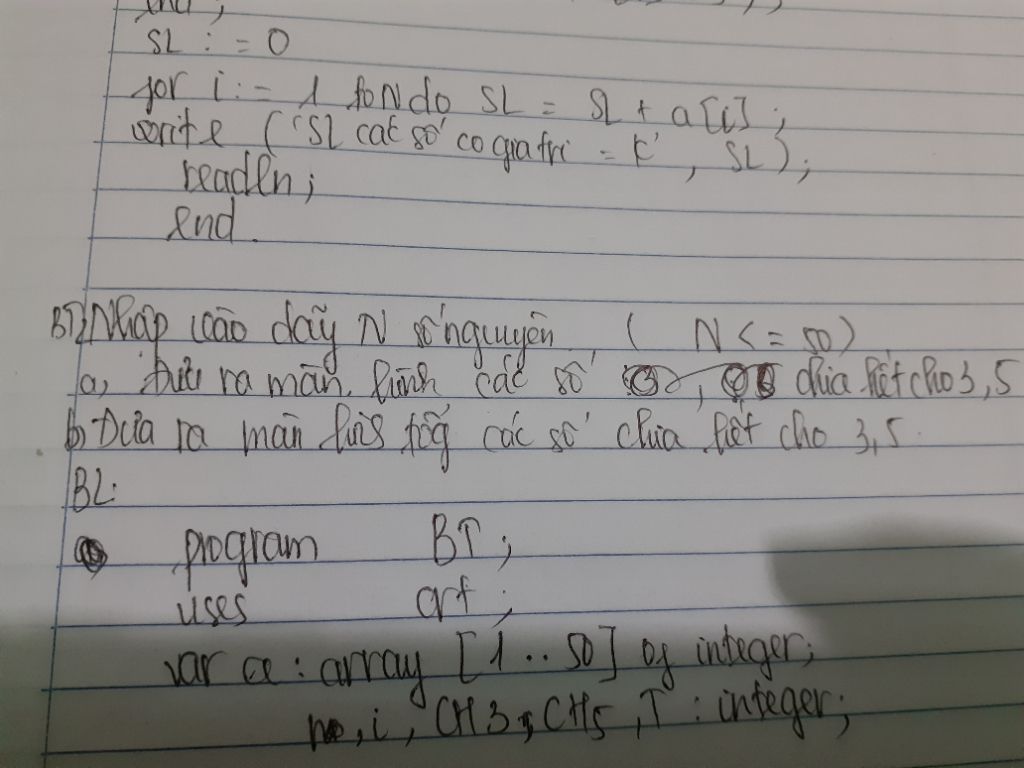 end;
SL := 0
for i := 1 to N do SL = SL + a[i];
write ('SL các số có giá trị = K', SL);
readln;
end.
BT2 Nhập vào dãy N số nguyên ( N <= 50)
a, Đưa ra màn hình các số chia hết cho 3, 5
b, Đưa ra màn hình tổg các số chia hết cho 3, 5.
BL:
program BT;
uses crt;
var a : array [1..50] of integer;
n, i, CH3, CH5, T : integer;